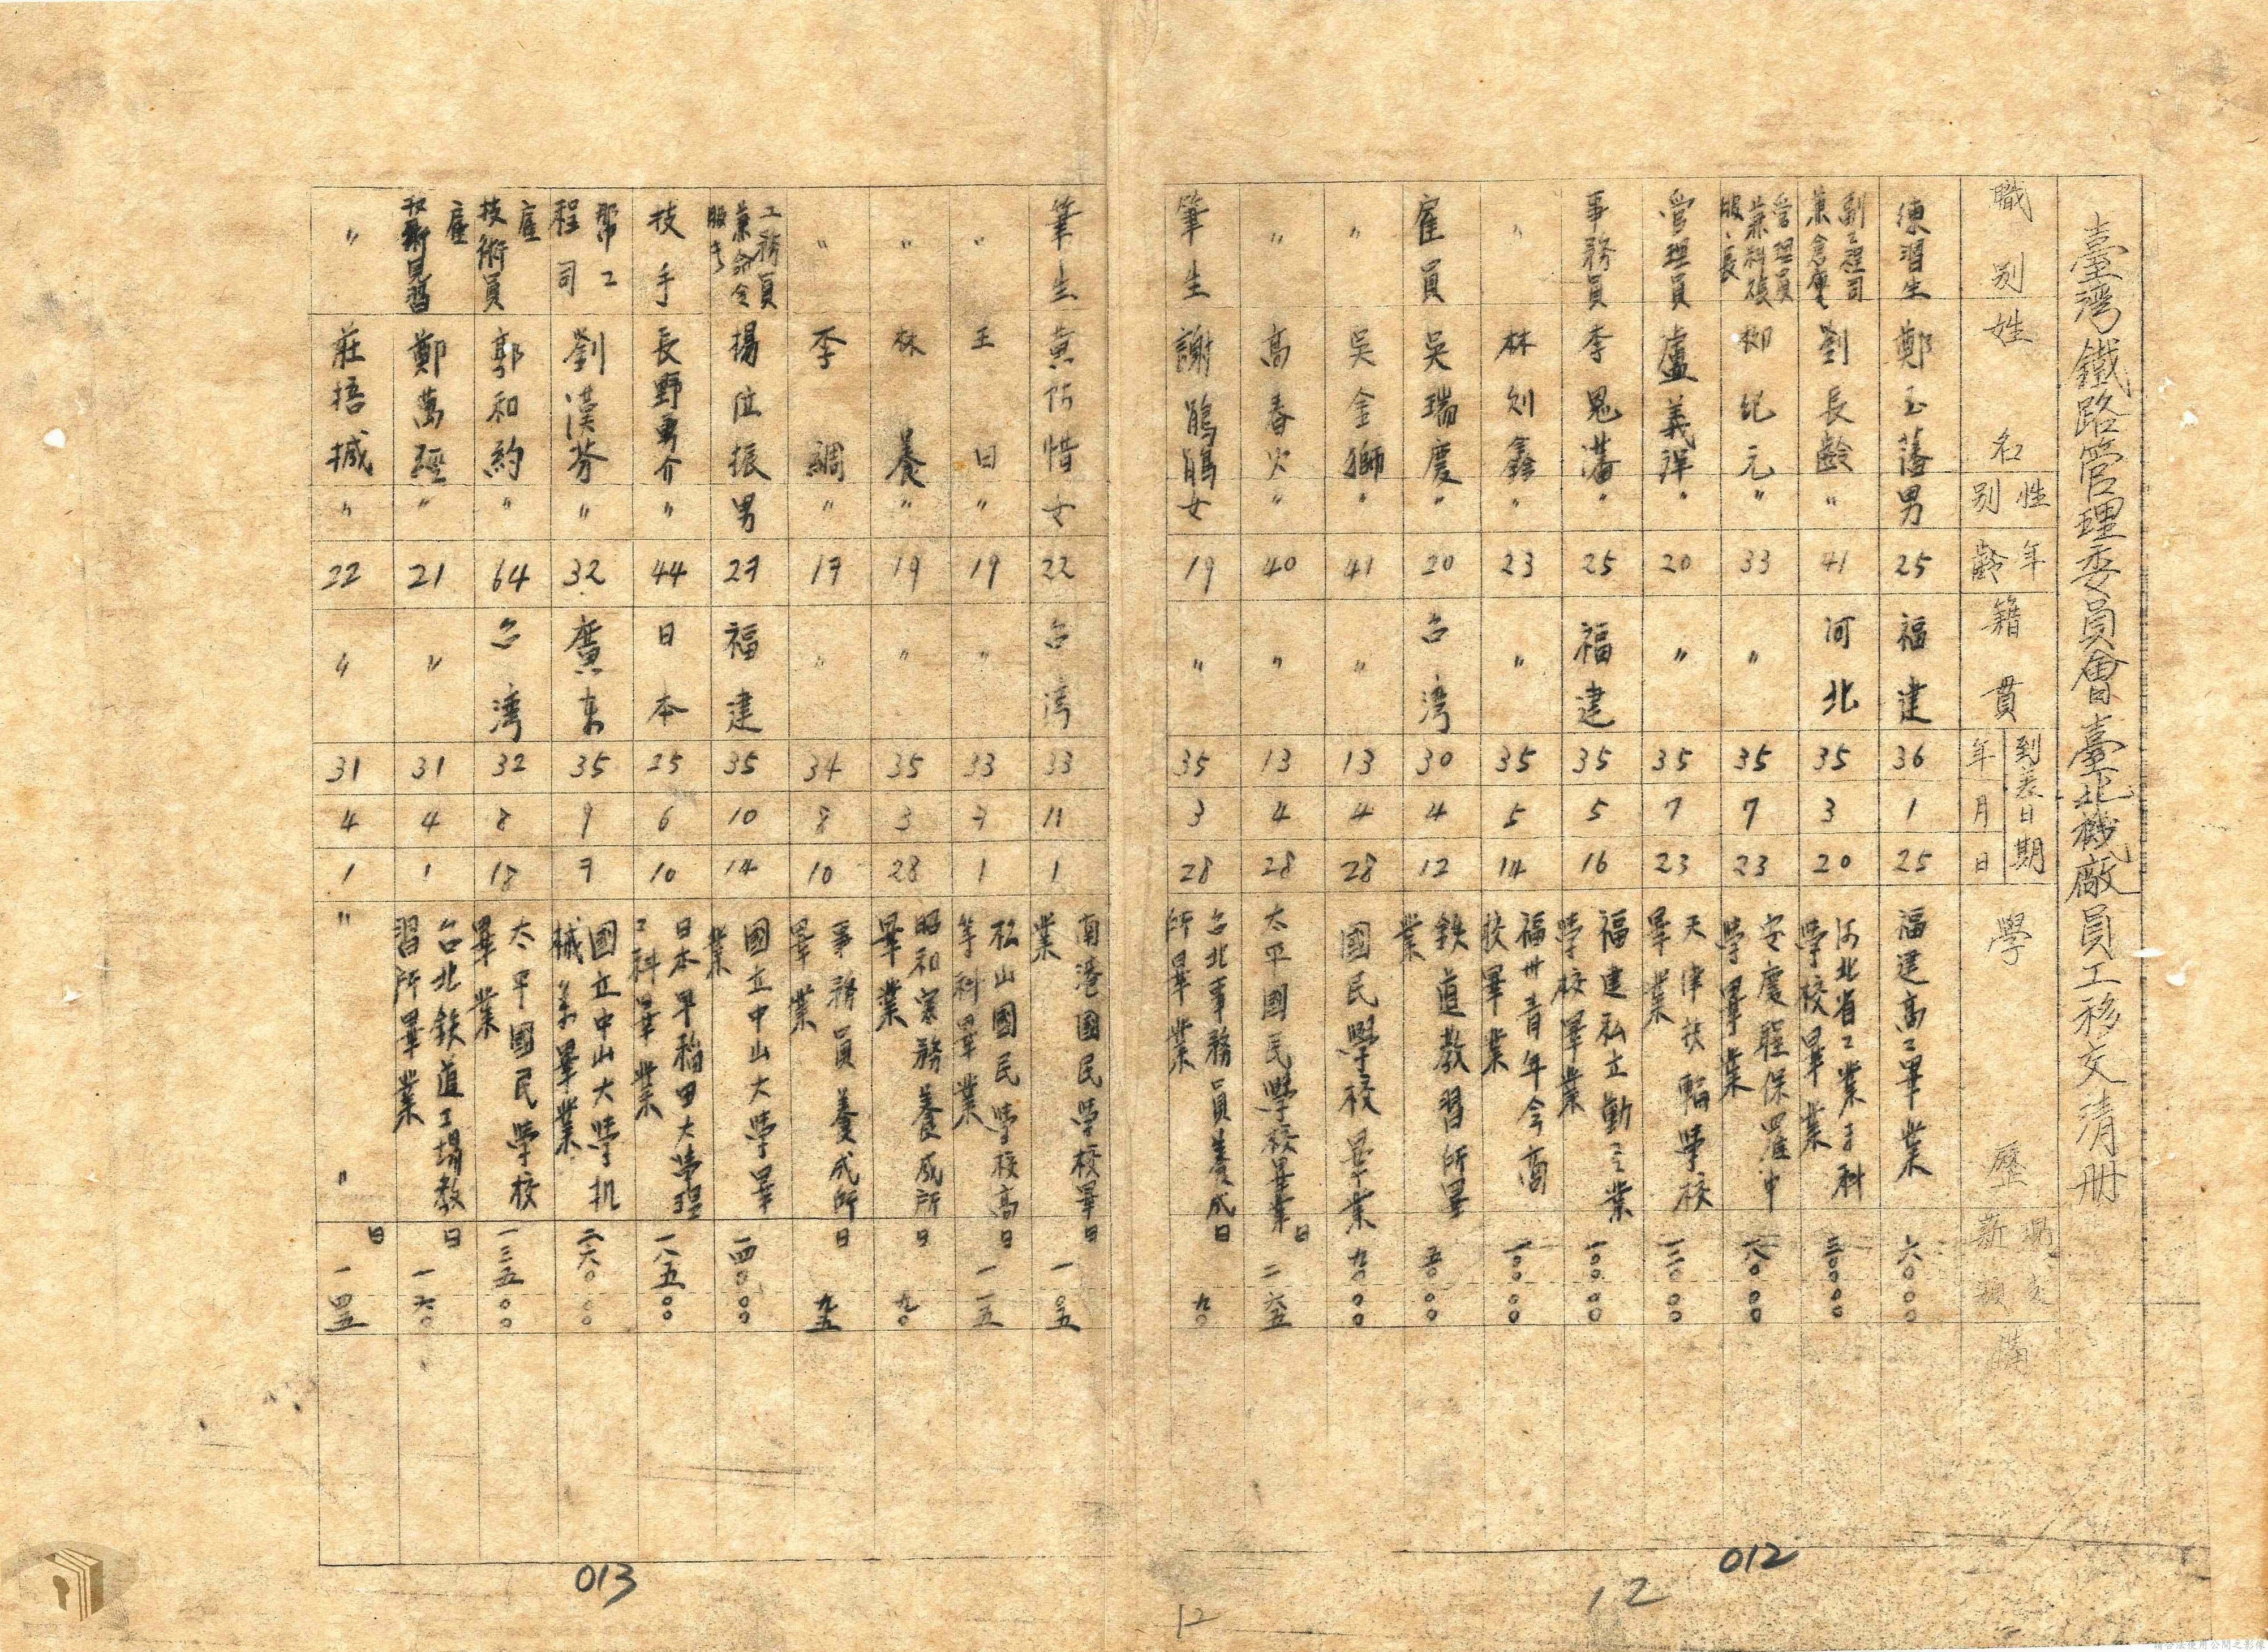 臺灣鐵路管理委員會臺北機廠員工移交清册
職别 姓名 性别 年齡 籍貫 到差日期 年 月 日 學歷 現支薪額 備
練習生 鄭玉藩 男 25 福建 36 1 25 福建高工畢業 六〇〇〇
副工程司兼倉庫 劉長齡 〃 41 河北 35 3 20 河北省工業工科學校畢業 三〇〇〇〇
管理員兼科股股長 柳紀元 〃 33 〃 35 7 23 安慶聖保羅中學畢業 一八〇〇〇
管理員 盧義萍 〃 20 〃 35 7 23 天津扶輪學校畢業 一三〇〇〇
事務員 李恩藩 〃 25 福建 35 5 16 福建私立勤工業學校畢業 一〇〇〇〇
〃 林劍鑫 〃 23 〃 35 5 14 福州青年會高校畢業 一〇〇〇〇
雇員 吳瑞慶 〃 20 台湾 30 4 12 鉄道教習所畢業 五〇〇〇
〃 吳金獅 〃 41 〃 13 4 28 國民學校畢業 九〇〇〇
〃 高春火 〃 40 〃 13 4 28 太平國民學校畢業 日 二六五
筆生 謝鵑鵑 女 19 〃 35 3 28 台北事務員養成所畢業 日 九〇
筆生 黃 惜 女 22 台湾 33 11 1 南港國民學校畢業 日 一〇五
〃 王日 〃 19 〃 33 7 1 松山國民學校高等科畢業 日 一一五
〃 林養 〃 19 〃 35 3 28 昭和 務養成所畢業 日 九〇
〃 李綢 〃 17 〃 34 8 10 事務員養成所畢業 日 九五
工務員兼 股長 楊位振 男 27 福建 35 10 14 國立中山大學畢業 一四〇〇〇
技手 長野勇介 〃 44 日本 25 6 10 日本早稲田大學理工科畢業 一八五〇〇
幫工程司 劉漢芬 〃 32 廣東 35 9 7 國立中山大學机械系畢業 二六〇〇〇
雇技術員 郭和約 〃 64 台湾 32 8 18 太平國民學校畢業 一三五〇〇
雇技術見習 鄭萬經 〃 21 〃 31 4 1 台北鉄道工場教習所畢業 日 一六〇
〃 莊捂搣 〃 22 〃 31 4 1 〃 〃 日 一四五
013
012
12
12